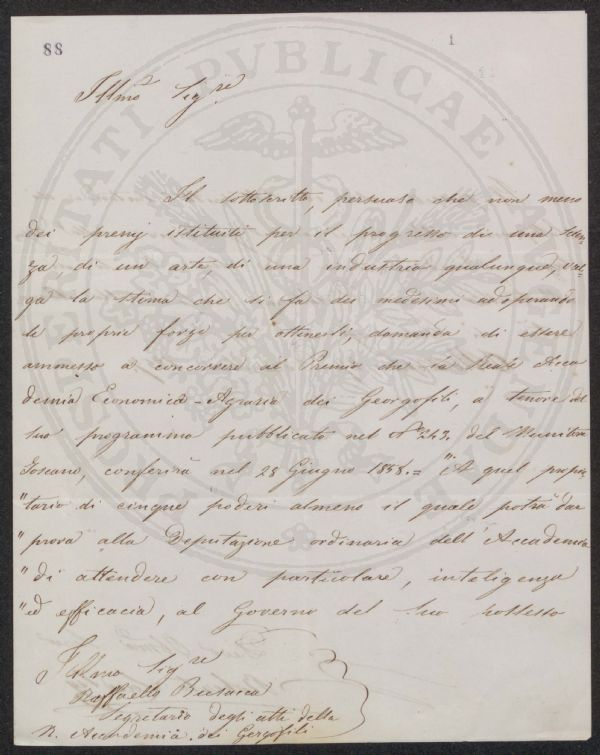 88
1
Illmo Sigre
Il sottoscritto, persuaso che non meno
dei premj istituiti per il progresso di una scien-
za, di un arte, di una industria qualunque, val-
ga la stima che si fa dei medesimi adoperando
le proprie forze per ottenerli, domanda di essere
ammesso a concorrere al Premio che la Reale Acca
demia Economico-Agraria dei Georgofili, a tenore del
suo programma pubblicato nel No 243. del Monitore
Toscano, conferirà nel 28 Giugno 1858.= "A quel proprie
"tario di cinque poderi almeno il quale potrà dar
"prova alla Deputazione ordinaria dell'Accademia
"di attendere con particolare, inteligenza
"ed efficacia, al Governo del suo possesso
Illmo Sigre
Raffaello Busacca
Segretario degli atti della
R. Accademia dei Gergofili
PROSPERITATI PVBLICAE AVGENDAE